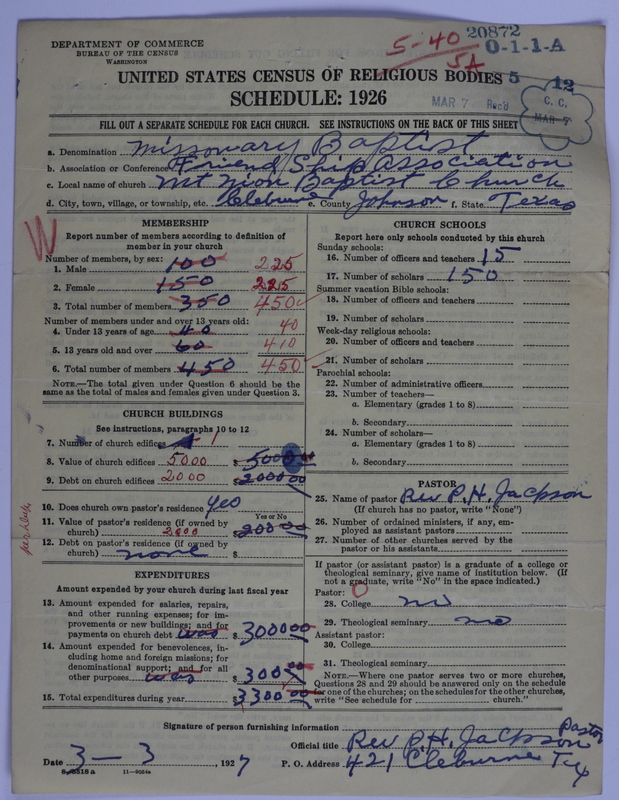 20872
DEPARTMENT OF COMMERCE
BUREAU OF THE CENSUS
WASHINGTON
5-40
5A
0-1-1-A
UNITED STATES CENSUS OF RELIGIOUS BODIES 5 12
SCHEDULE: 1926
MAR 7 Rec'd
C. C.
MAR 7
FILL OUT A SEPARATE SCHEDULE FOR EACH CHURCH. SEE INSTRUCTIONS ON THE BACK OF THIS SHEET
a. Denomination Missonary Baptist
b. Association or Conference Friend Ship Association
c. Local name of church Mt Zion Baptist Church
d. City, town, village, or township, etc. Cleburne e. County Johnson f. State Texas
W
MEMBERSHIP
Report number of members according to definition of
member in your church
Number of members, by sex:
1. Male 100 225
2. Female 150 225
3. Total number of members 350 450
Number of members under and over 13 years old:
4. Under 13 years of age 40 40
5. 13 years old and over 60 410
6. Total number of members 450 450
NOTE.—The total given under Question 6 should be the
same as the total of males and females given under Question 3.
CHURCH BUILDINGS
See instructions, paragraphs 10 to 12
7. Number of church edifices 1
8. Value of church edifices 5000 $ 5000
9. Debt on church edifices 2000 $ 2000 00
10. Does church own pastor's residence yes
Yes or No
11. Value of pastor's residence (if owned by
church) 2000 $ 2000 00
12. Debt on pastor's residence (if owned by
church) none $
EXPENDITURES
Amount expended by your church during last fiscal year
13. Amount expended for salaries, repairs,
and other running expenses; for im-
provements or new buildings; and for
payments on church debt was $ 3000 00
14. Amount expended for benevolences, in-
cluding home and foreign missions; for
denominational support; and for all
other purposes was $ 300
15. Total expenditures during year $ 3300 00
CHURCH SCHOOLS
Report here only schools conducted by this church
Sunday schools:
16. Number of officers and teachers 15
17. Number of scholars 150
Summer vacation Bible schools:
18. Number of officers and teachers
19. Number of scholars
Week-day religious schools:
20. Number of officers and teachers
21. Number of scholars
Parochial schools:
22. Number of administrative officers
23. Number of teachers—
a. Elementary (grades 1 to 8)
b. Secondary
24. Number of scholars—
a. Elementary (grades 1 to 8)
b. Secondary
PASTOR
25. Name of pastor Rev P. H. Jackson
(If church has no pastor, write "None")
26. Number of ordained ministers, if any, em-
ployed as assistant pastors
27. Number of other churches served by the
pastor or his assistants
If pastor (or assistant pastor) is a graduate of a college or
theological seminary, give name of institution below. (If
not a graduate, write "No" in the space indicated.)
Pastor: 0
28. College no
29. Theological seminary no
Assistant pastor:
30. College
31. Theological seminary
NOTE.—Where one pastor serves two or more churches,
Questions 28 and 29 should be answered only on the schedule
for one of the churches; on the schedules for the other churches,
write "See schedule for church."
Signature of person furnishing information
Pastor
Official title Rev P. H. Jackson
Date 3-3, 1927 P. O. Address 421 Cleburne Tex
11-9034a